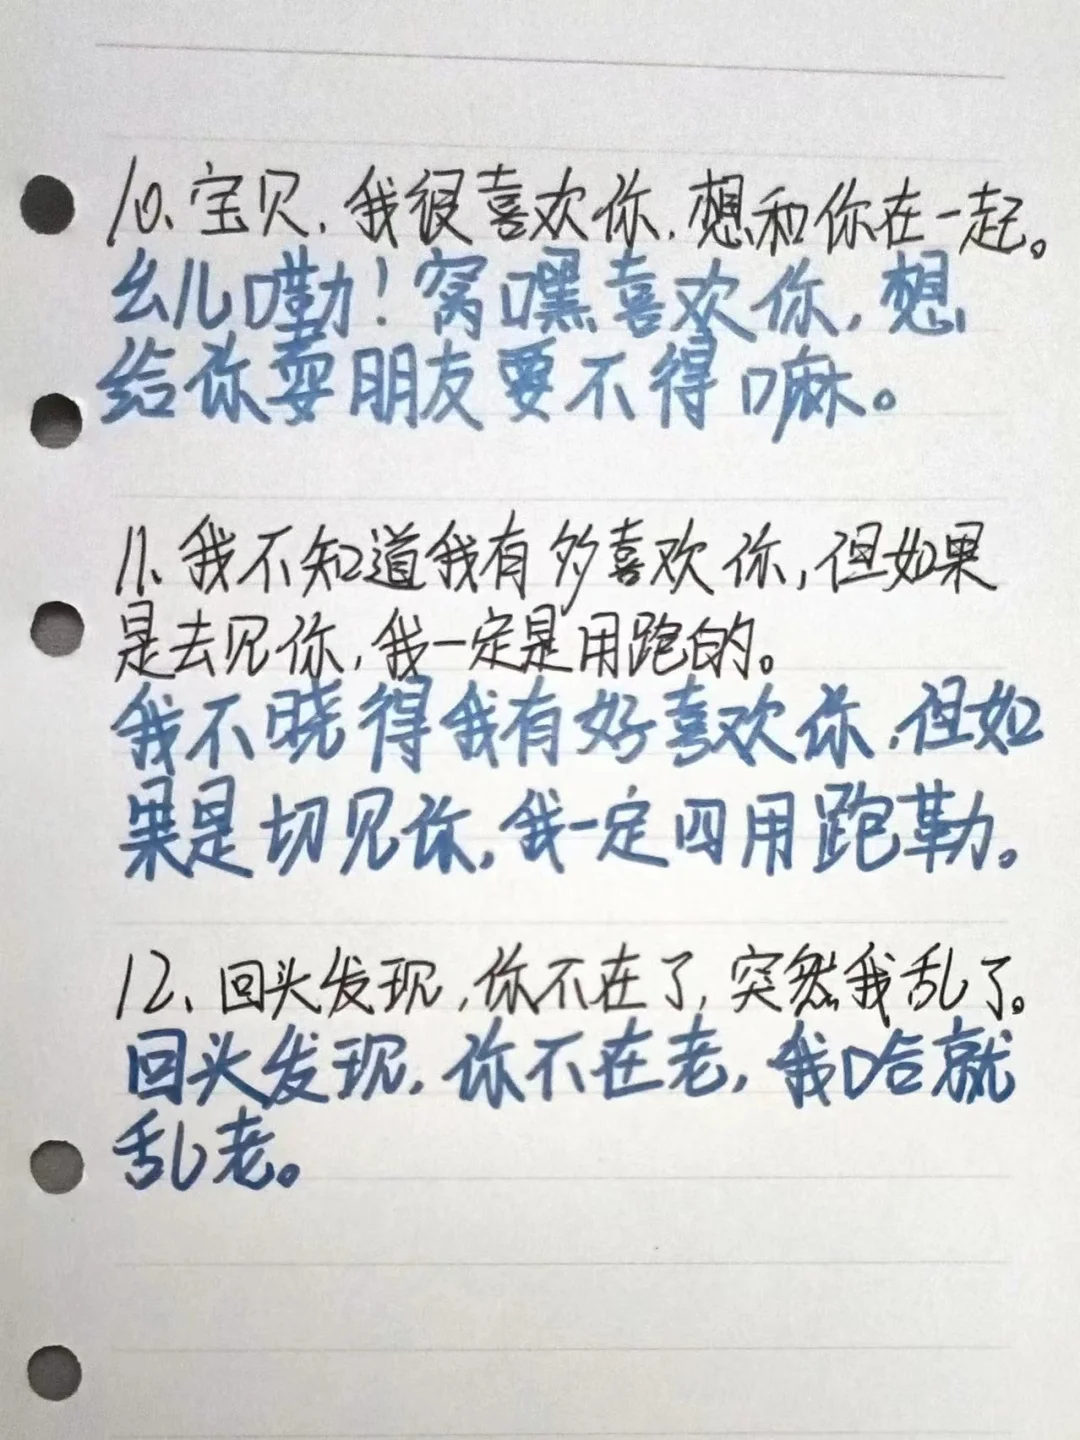 10、宝贝，我很喜欢你，想和你在一起。
幺儿嘞！窝嘿喜欢你，想
给你耍朋友要不得嘛。
11、我不知道我有多喜欢你，但如果
是去见你，我一定是用跑的。
我不晓得我有好喜欢你，但如
果是切见你，我一定四用跑勒。
12、回头发现，你不在了，突然我乱了。
回头发现，你不在老，我哈就
乱老。